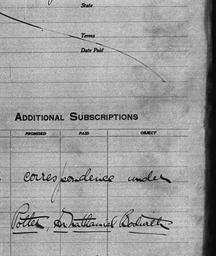 State
Terms
Date Paid
ADDITIONAL SUBSCRIPTIONS
PROMISED PAID OBJECT
correspondence under
Potter, Dr. Nathaniel Bowditch